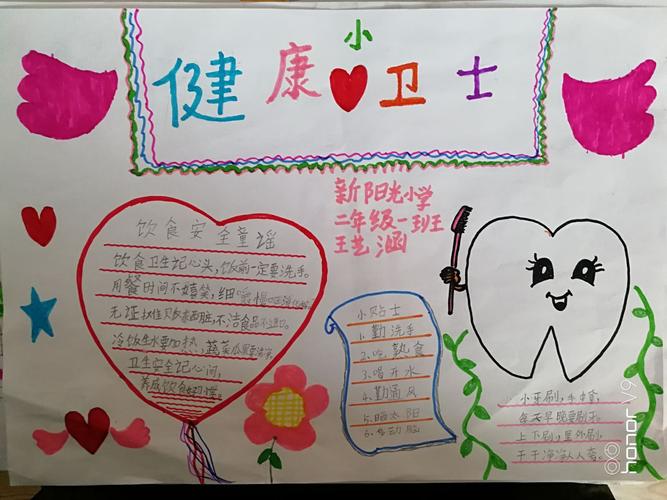 健康小卫士
新阳光小学
二年级一班王
王艺涵
饮食安全童谣
饮食卫生记心头,饭前一定要洗手。
用餐时间不嬉笑,细嚼慢咽消化
无证摊贩东西脏,不洁食品不进口。
冷饭生水要加热,蔬菜瓜果要清洗,
卫生安全记心间,
养成饮食好习惯。
小贴士
1.勤洗手
2.吃熟食
3.喝开水
4.勤通风
5.晒太阳
6.多动脑
小牙刷,手中拿,
每天早晚要刷牙。
上下刷,里外刷,
干干净净人人夸。
honor V9